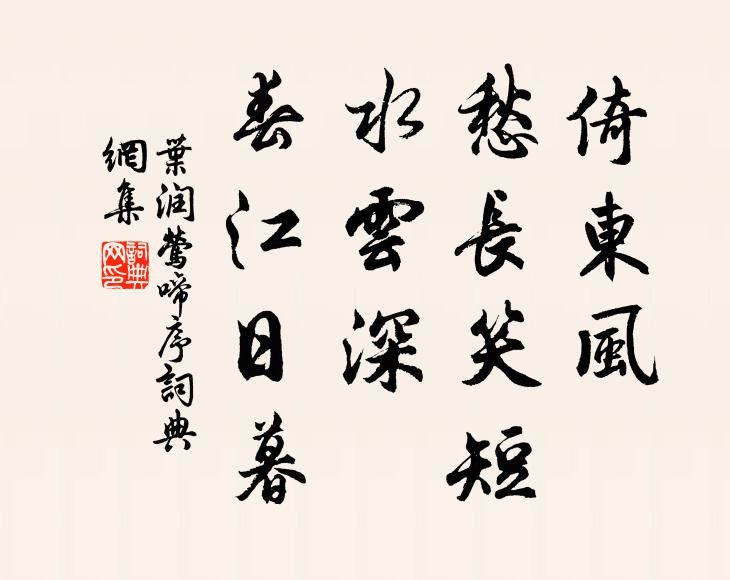 倚東風
愁長笑短
水雲深
春江日暮
葉润鶯啼序詞典
網集
詞典
网印